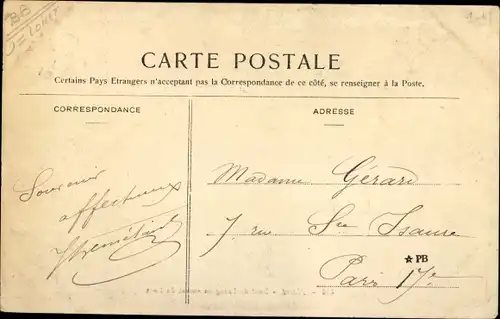 BB
CARTE POSTALE
Certains Pays Etrangers n'acceptant pas la Correspondance de ce côté, se renseigner à la Poste.
CORRESPONDANCE
ADRESSE
Souvenir
affectueux
Madame Gérard
7 rue Ste Isaure
PB
Paris 17e